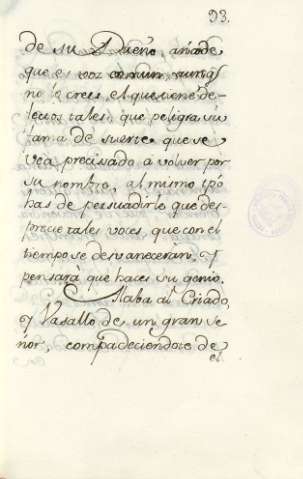 93.
de su Dueño, añade
que es voz comun, aunq̃
no lo crees, el que tiene de-
lectos tales, que peligra su
fama de suerte que se
vea precisado a volver por
su nombre, al mismo tpõ
has de persuadirle que des-
precie tales voces, que con el
tiempo se desvaneceràn, y
pensarà que haces su genio.
Alaba al Criado,
y Vasallo de un gran se
ñor, compadeciendote de
el